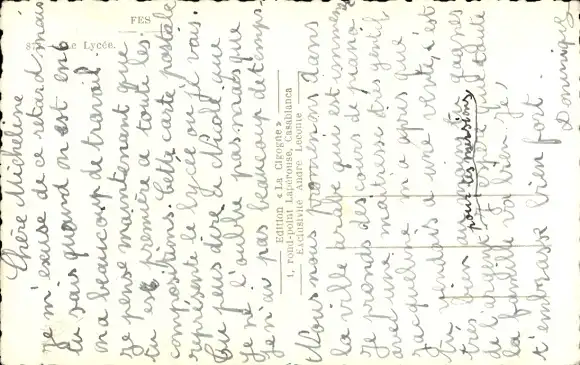 FES
Le Lycée.
Edition « La Cigogne »
1, rond-point Lapérouse, Casablanca
Exclusivité André Leconte
Chère Micheline
Je m'excuse de ce retard, mais
tu sais quand on est en 6
on a beaucoup de travail
Je pense maintenant que
tu es première à toute les
compositions. Cette carte postale
représente le lycée où j'y vais.
Tu peux dire à Nicole que
je ne l'oublie pas mais que
je n'ai pas beaucoup de temps
Nous nous promenons dans
la ville arabe qui est immense
Je prends des cours de piano
avec une maîtresse très gentille
Jacqueline m'a apris que
tu vendais à une vente, c'est
très bien tu gagnes
de l'argent pour les missions toute
la famille va bien. Je
t'embrasse bien fort.
Dominique